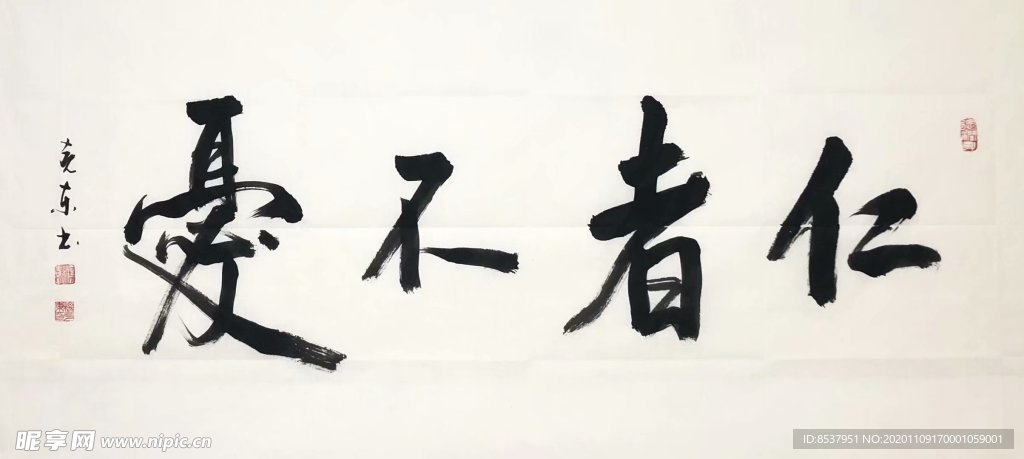 仁者不憂
克东书
昵享网 www.nipic.cn
ID:8537951 NO:20201109170001059001